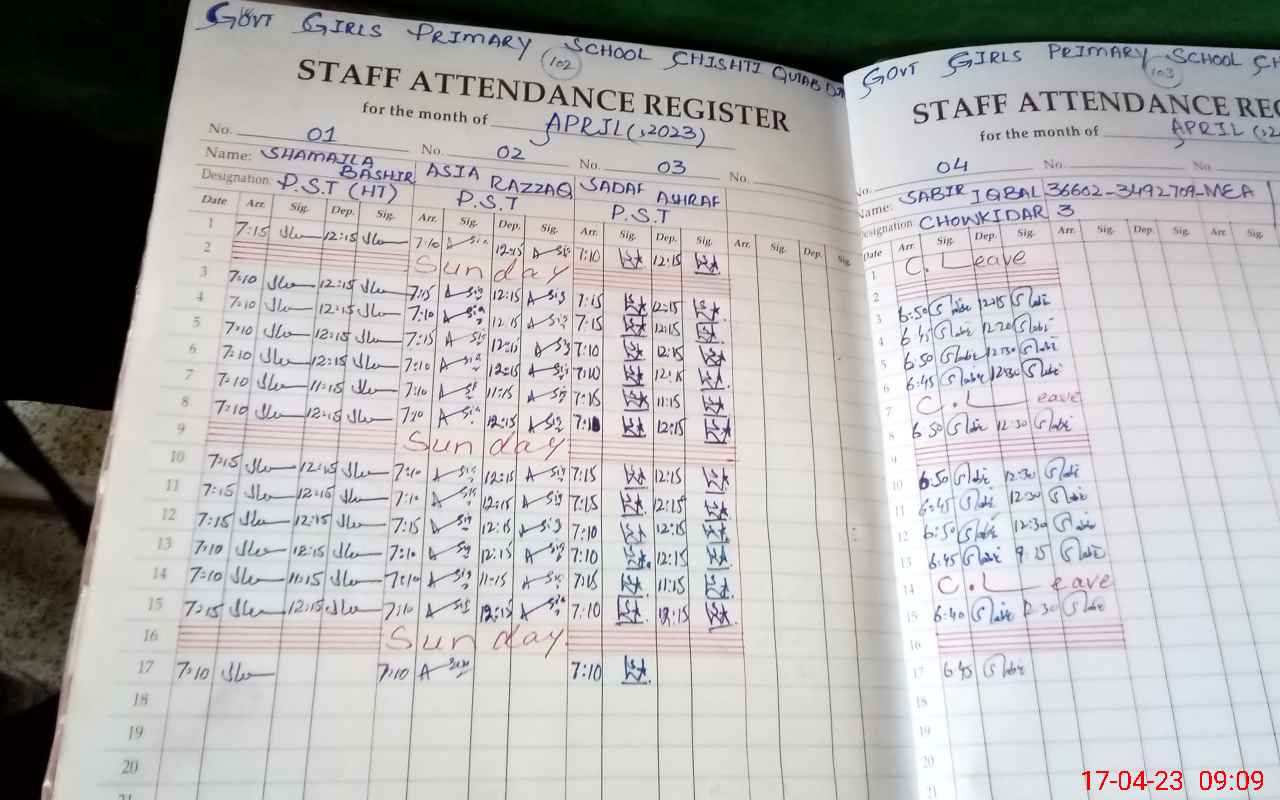 GOVT GIRLS PRIMARY SCHOOL CHISHTI QUTAB
102
STAFF ATTENDANCE REGISTER
for the month of APRIL (,2023)
No. 01 No. 02 No. 03 No.
Name: SHAMAILA BASHIR ASIA RAZZAQ SADAF ASHRAF
Designation: P.S.T (HT) P.S.T P.S.T
Date Arr. Sig. Dep. Sig. Arr. Sig. Dep. Sig. Arr. Sig. Dep. Sig. Arr. Sig. Dep. Sig.
1 7:15 12:15 7:10 12:15 7:10 12:15
2 Sunday
3 7:10 12:15 7:15 12:15 7:15 12:15
4 7:10 12:15 7:10 12:15 7:15 12:15
5 7:10 12:15 7:15 12:15 7:10 12:15
6 7:10 12:15 7:10 12:15 7:10 12:15
7 7:10 11:15 7:10 11:15 7:15 11:15
8 7:10 12:15 7:10 12:15 7:10 12:15
9 Sunday
10 7:15 12:15 7:10 12:15 7:15 12:15
11 7:15 12:15 7:10 12:15 7:15 12:15
12 7:15 12:15 7:15 12:15 7:10 12:15
13 7:10 12:15 7:10 12:15 7:10 12:15
14 7:10 11:15 7:10 11:15 7:15 11:15
15 7:15 12:15 7:10 12:15 7:10 12:15
16 Sunday
17 7:10 7:10 7:10
18
19
20
21
GOVT GIRLS PRIMARY SCHOOL
103
STAFF ATTENDANCE
for the month of APRIL
No. 04 No. No.
Name: SABIR IQBAL 36602-3492709-MEA
Designation CHOWKIDAR 3
Date Arr. Sig. Dep. Sig. Arr. Sig. Dep. Sig. Arr. Sig.
1 C. Leave
2
3 6:50 12:15
4 6:45 12:20
5 6:50 12:30
6 6:45 12:30
7 C. Leave
8 6:50 12:30
9
10 6:50 12:30
11 6:45 12:30
12 6:50 12:30
13 6:45 9:15
14 C. Leave
15 6:40 12:30
16
17 6:45
18
19
20
21
17-04-23 09:09